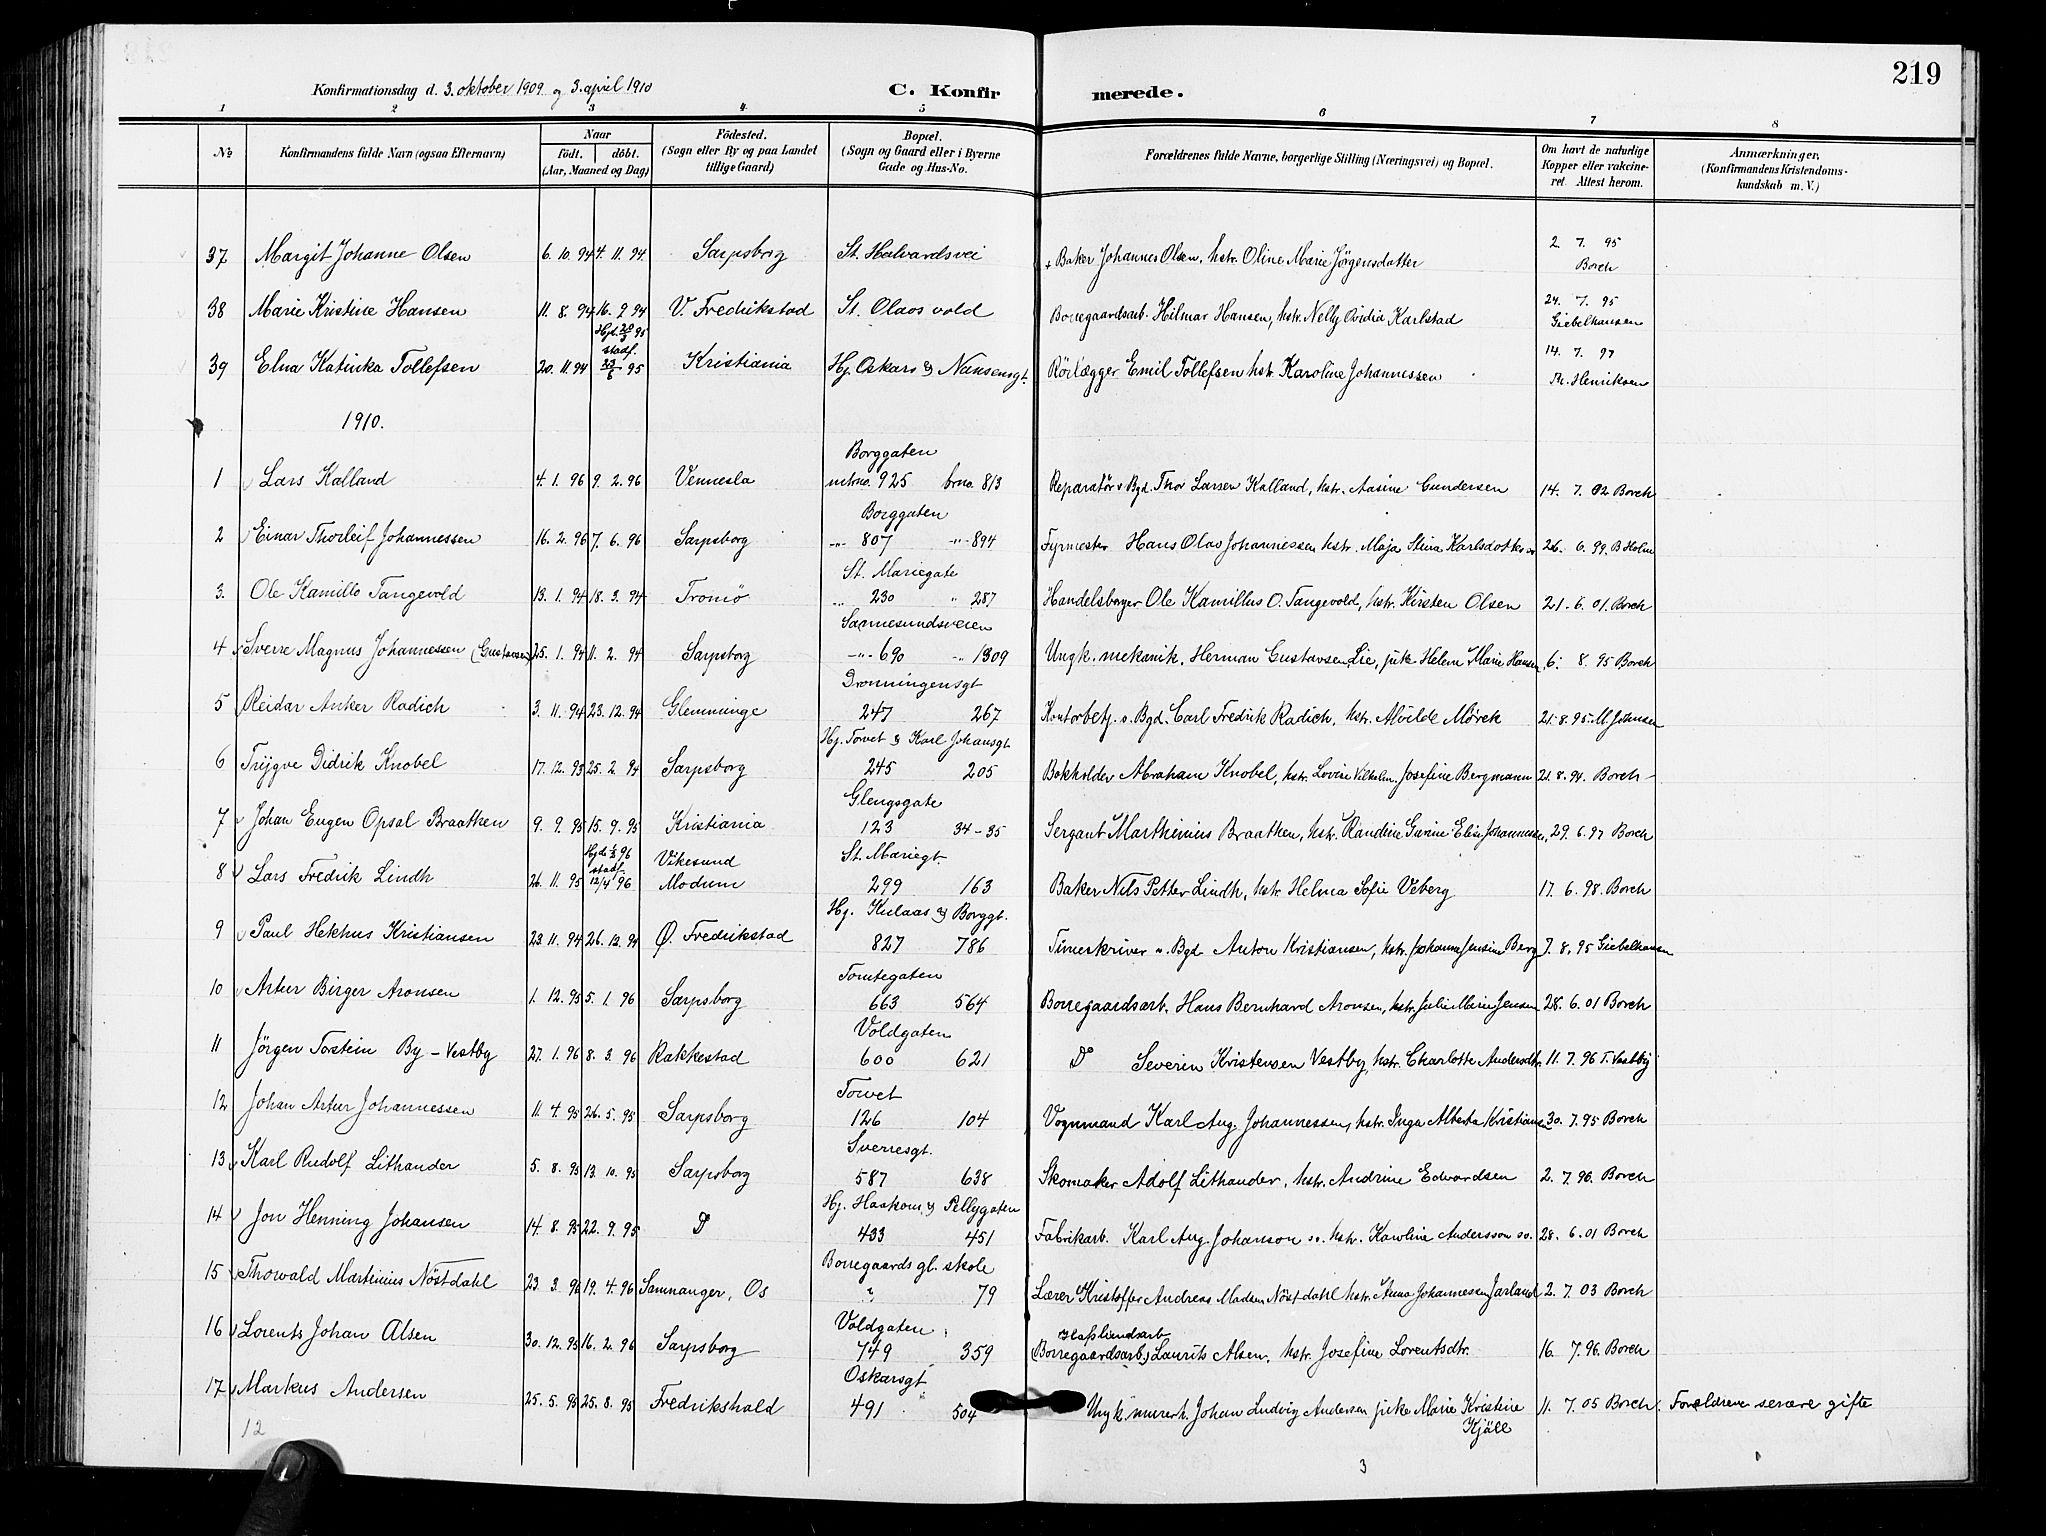 219
Konfirmationsdag d. 3. oktober 1909 og 3. april 1910 C. Konfir merede.
1 2 3 4 5 6 7 8
No Konfirmandens fulde Navn (ogsaa Efternavn) Naar födt. döbt. (Aar, Maaned og Dag) Födested. (Sogn eller By og paa Landet tillige Gaard) Bopæl. (Sogn og Gaard eller i Byerne Gade og Hus-No. Forældrenes fulde Navne, borgerlige Stilling (Næringsvei) og Bopæl. Om havt de naturlige Kopper eller vakcineret. Attest herom. Anmærkninger, (Konfirmandens Kristendomskundskab m. V.)
37 Margit Johanne Olsen 6. 10. 94 4. 11. 94 Sarpsborg St. Halvardsvei + Baker Johannes Olsen, hstr. Oline Marie Jörgensdatter 2. 7. 95 Borch
38 Marie Kristine Hansen 11. 8. 94 16. 9. 94 V. Fredrikstad St. Olavs vold Borregaardsarb. Hilmar Hansen, hstr. Nelly Ovidia Karlstad 24. 7. 95 Giebelhausen
39 Elna Katinka Tollefsen 20. 11. 94 Hjd. 20/3 95 stadf. 23/6 95 Kristiania Hj. Oskars & Nansensgt. Rörlægger Emil Tollefsen hstr. Karoline Johannessen 14. 7. 97 Th. Henriksen
1910.
1 Lars Kalland 4. 1. 96 9. 2. 96 Vennesla Borggaten mtrno. 925 brno. 813 Reparatör v. Bgd. Thor Larsen Kalland, hstr. Aasine Gundersen 14. 7. 02 Borch
2 Einar Thorleif Johannessen 16. 2. 96 7. 6. 96 Sarpsborg Borggaten -"- 807 -"- 894 Fyrmester Hans Olav Johannessen hstr. Maja Stina Karlsdotter 26. 6. 99. B Holm
3. Ole Kamillo Tangevold 13. 1. 94 18. 3. 94 Tromö St. Mariegate " 230 " 287 Handelsborger Ole Kamillus O. Tangevold, hstr. Kirsten Olsen 21. 6. 01. Borch
4 Sverre Magnus Johannessen (Gustavsen) 25. 1. 94 11. 2. 94 Sarpsborg Sannesundsveien -"- 690 -"- 1309 Ungk. mekanik. Herman Gustavsen Lie, pike Helene Marie Hansen 6. 8. 95 Borch
5 Reidar Anker Radich 3. 11. 94 23. 12. 94 Glemminge Dronningensgt 247 267 Kontorbetj. v. Bgd. Carl Fredrik Radich, hstr. Alvilde Mörck 21. 8. 95. M Johnsen
6 Trygve Didrik Knobel 17. 12. 93 25. 2. 94 Sarpsborg Hj. Torvet & Karl Johansgt 245 205 Bokholder Abraham Knobel, hstr. Lovise Vilhelm. Josefine Bergmann 21. 8. 94. Borch
7 Johan Eugen Opsal Braathen 9. 9. 95 15. 9. 95 Kristiania Glengsgate 123 34-35 Sergant Marthinius Braathen, hstr. Randine Gurine Elise Johannessen, 29. 6. 97 Borch
8 Lars Fredrik Lindh 26. 11. 95 stadf. 12/4 96 Vikesund Modum St. Mariegt. 299 163 Baker Nils Petter Lindh, hstr. Helma Sofie Veberg 17. 6. 98. Borch
9 Paul Hekhus Kristiansen 23. 11. 94 26. 12. 94 Ø. Fredrikstad Hj. Kulaas & Borggt. 827 786 Timeskriver v. Bgd Anton Kristiansen, hstr. Johanne Jensine Berg 7. 8. 95 Giebelhausen
10 Artur Birger Aronsen 1. 12. 95 5. 1. 96 Sarpsborg Tomtegaten 663 564 Borregaardsarb. Hans Bernhard Aronsen, hstr. Julie Marie Jensen 28. 6. 01 Borch
11 Jörgen Torstein By - Vestby 27. 1. 96 8. 3. 96 Rakkestad Voldgaten 600 621 Do Severin Kristensen Vestby, hstr. Charlotte Andersdtr. 11. 7. 96 T. Vestby
12 Johan Artur Johannessen 11. 4. 95 26. 5. 95 Sarpsborg Torvet 126 104 Vognmand Karl Aug. Johannessen, hstr. Inga Alberta Kristiansen 30. 7. 95 Borch
13 Karl Rudolf Lithander 5. 8. 95 13. 10. 95 Sarpsborg Sverresgt. 587 638 Skomaker Adolf Lithander, hstr. Andrine Edvardsen 2. 7. 96. Borch
14 Jon Henning Johansen 14. 8. 95 22. 9. 95 Do Hj. Haakons & Pellygaten 433 451 Fabrikarb. Karl Aug. Johanson sv. hstr. Karoline Andersson sv. 28. 6. 01 Borch
15 Thorvald Martinius Nöstdahl 23. 3. 96 19. 4. 96 Samnanger, Os Borregaards gl. skole " 79 Lærer Kristoffer Andreas Madsen Nöstdahl hstr. Anna Johannesen Jarland 2. 7. 03 Borch
16 Lorents Johan Alsen 30. 12. 95 16. 2. 96 Sarpsborg Voldgaten 749 359 Hafslundsarb (Borregaardsarb.) Laurits Alsen, hstr. Josefine Lorentsdtr. 16. 7. 96. Borch
17 Markus Andersen 25. 5. 95 25. 8. 95 Fredrikshald Oskarsgt 491 504 Ungk. murerh. Johan Ludvig Andersen pike Marie Kristine Kjäll 11. 7. 05 Borch. Forældrene senere gifte
12
3